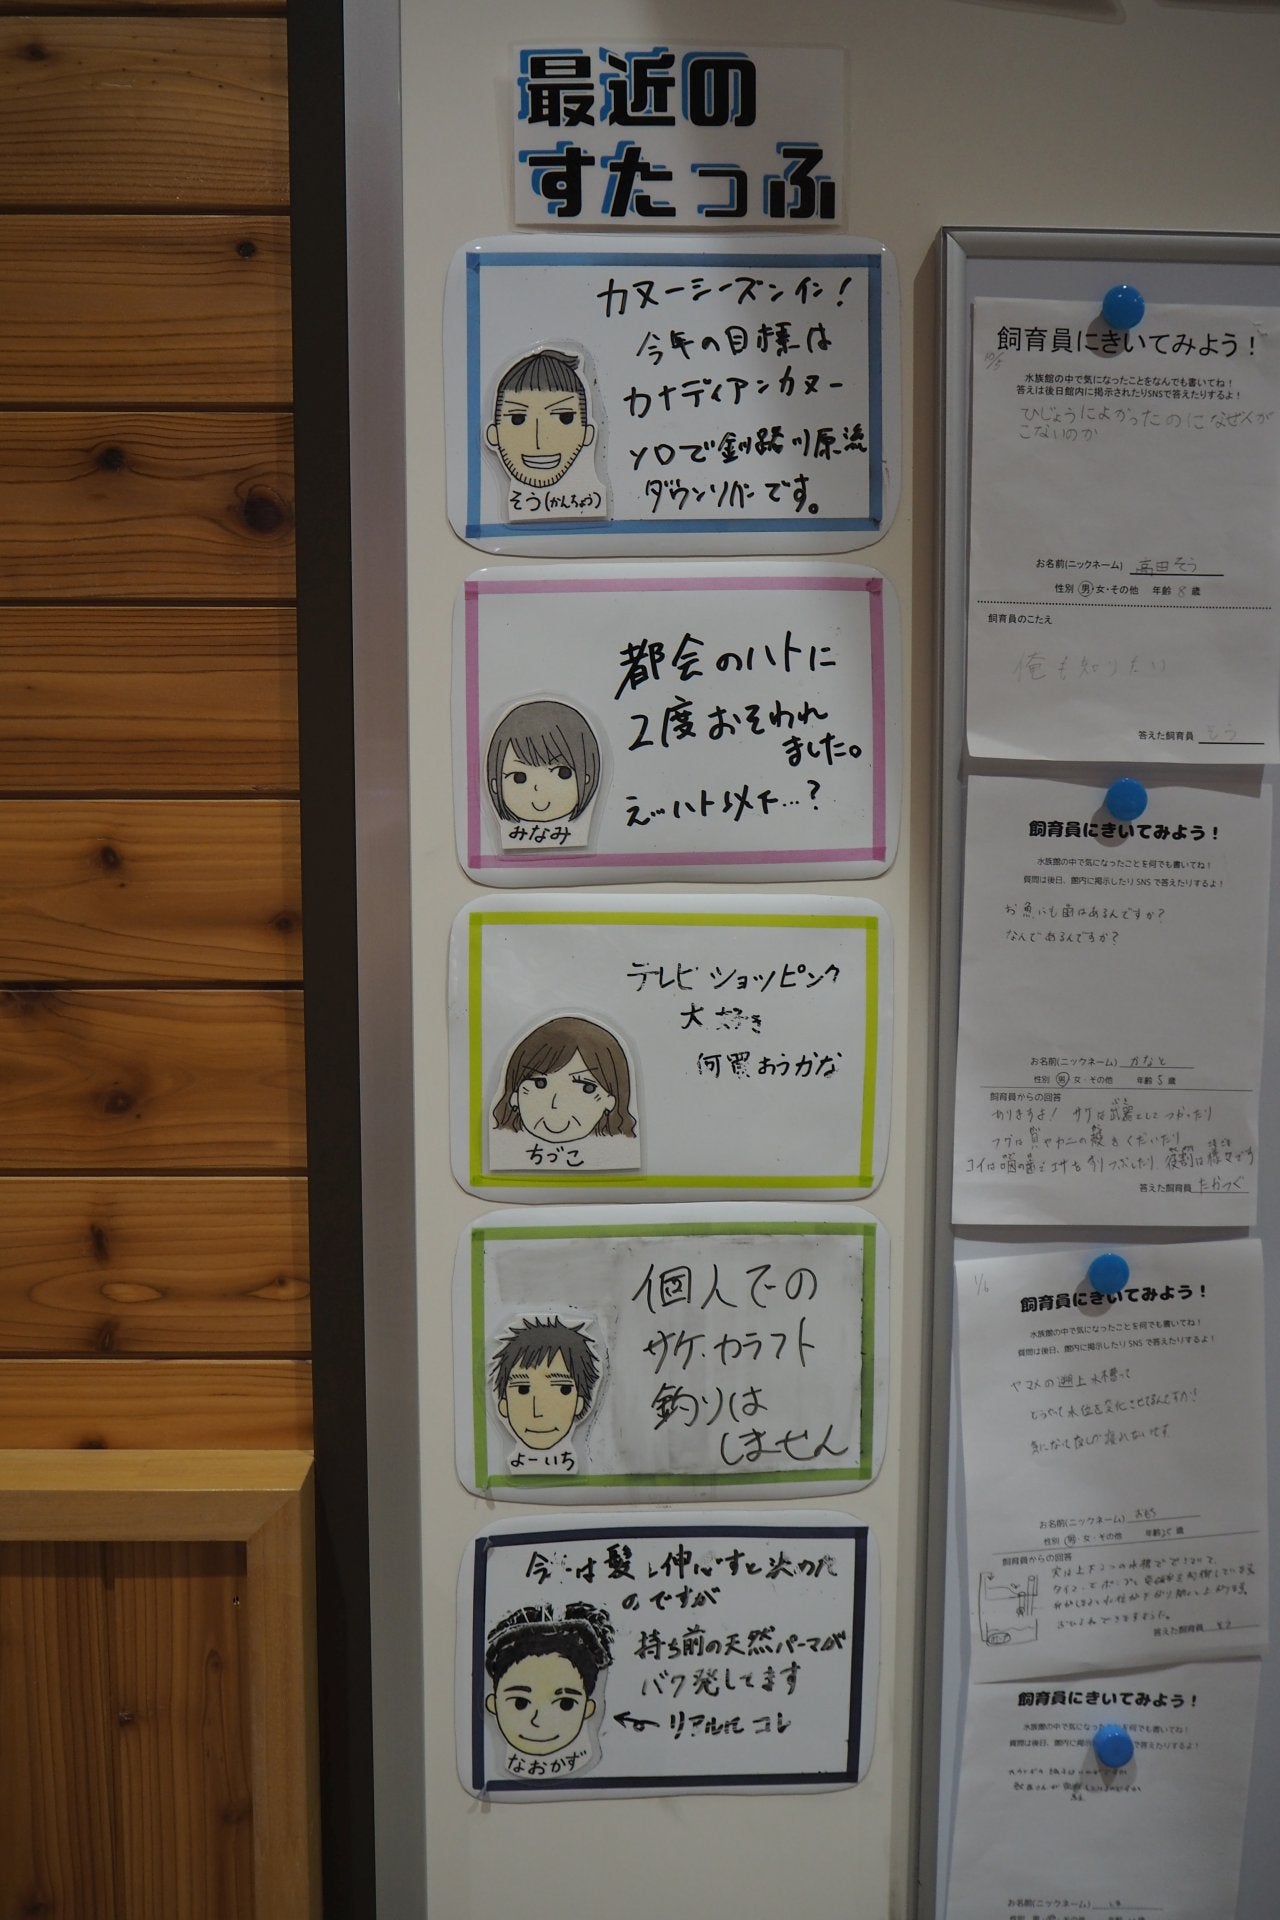 最近の
すたっふ
カヌーシーズンイン!
今年の目標は
カナディアンカヌー
ソロで釧路川源流
ダウンリバーです。
そう(かんちょう)
都会のハトに
2度おそわれ
ました。
え…ハト以下…?
みなみ
テレビショッピング
大好き
何買おうかな
ちづこ
個人での
サケ.カラフト
釣りは
しません
よーいち
は髪 伸ばすと決めた
のですが
持ち前の天然パーマが
バク発してます
←リアルにコレ
なおかず
飼育員にきいてみよう!
水族館の中で気になったことをなんでも書いてね!
答えは後日館内に掲示されたりSNSで答えたりするよ!
ひじょうによかったのになぜ人が
こないのか
お名前(ニックネーム) 高田そう
性別 男・女・その他 年齢 8 歳
飼育員のこたえ
俺も知りたい
答えた飼育員 そう
飼育員にきいてみよう!
水族館の中で気になったことを何でも書いてね!
質問は後日、館内に掲示したりSNSで答えたりするよ!
お魚にも歯はあるんですか?
なんであるんですか?
お名前(ニックネーム) かなと
性別 男・女・その他 年齢 5 歳
飼育員からの回答
ありますよ! サケは武器としてつかったり
フグは貝やカニの殻をくだいたり
コイは咽の歯でエサをすりつぶしたり、役割は様々です
答えた飼育員 たかつぐ
1/6
飼育員にきいてみよう!
水族館の中で気になったことを何でも書いてね!
質問は後日、館内に掲示したりSNSで答えたりするよ!
ヤマメの遡上水槽って
どうやって水位を変化させてるんですか!
気になって夜しか寝れないです
お名前(ニックネーム)
性別 男・女・その他 年齢 25 歳
飼育員からの回答
実は上下2つの水槽でできていて、
答えた飼育員
飼育員にきいてみよう!
水族館の中で気になったことを何でも書いてね!
質問は後日、館内に掲示したりSNSで答えたりするよ!
お名前(ニックネーム)